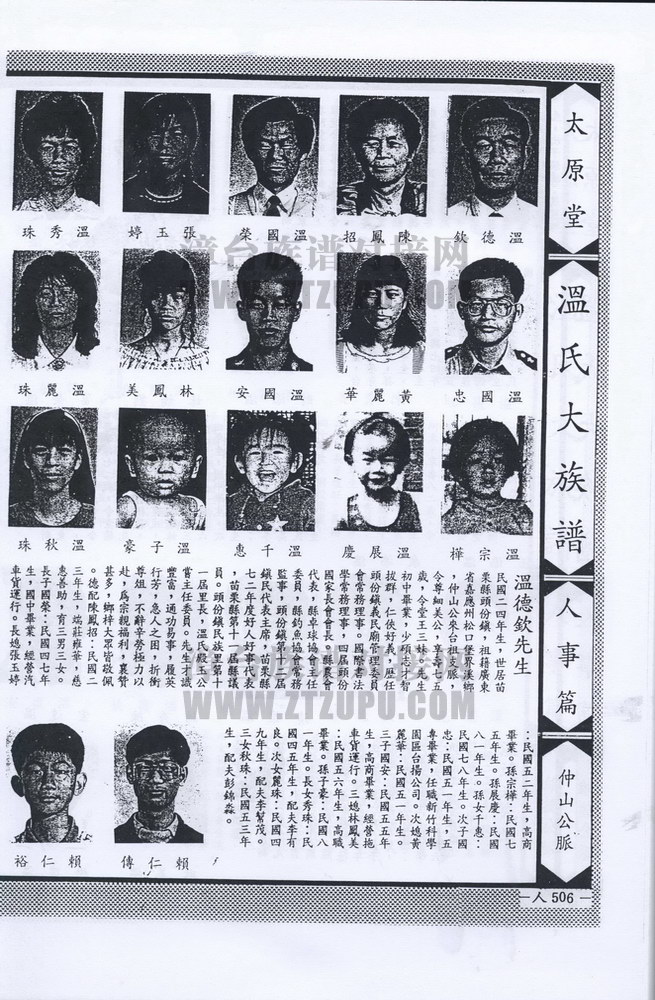 太原堂
溫氏大族譜
人事篇
仲山公脈
溫德欽
陳鳳招
溫國榮
張玉婷
溫秀珠
溫國忠
黃麗華
溫國安
林鳳美
溫麗珠
溫宗樺
溫展慶
溫千惠
溫子豪
溫秋珠
溫德欽先生
民國二四年生，世居苗
栗縣頭份鎮，祖籍廣東
省嘉應州松口堡界溪鄉
，仲山公來台祖支脈，
令尊細美公，享壽七五
歲，令堂王三妹。先生
初中畢業，少頎志才智
拔群，仁俠好義，歷任
頭份鎮義民廟管理委員
會常務理事。國際書法
學常務理事，四屆頭份
國家長會會長，縣農會
代表，縣卓球協會主任
委員，縣釣魚協會常務
監事，頭份鎮第十一屆
鎮民代表主席，苗栗縣
七二年度好人好事代表
，苗栗縣第十一屆縣議
員。頭份鎮民族里第十
一屆里長，溫氏殿玉公
嘗主任委員。先生才識
豐富，通功易事，履英
行芳，急人之困，折衝
尊俎，不辭辛勞極力以
赴，為宗親福利，襄贊
甚多，鄉梓大眾皆敬佩
。德配陳鳳招：民國二
三年生，端莊雍華，慈
惠善助，育三男三女。
長子國榮：民國四七年
生，國中畢業，經營汽
車貨運行。長媳張玉婷
：民國五二年生，高商
畢業。孫宗樺：民國七
五年生。孫展慶：民國
八一年生。孫女千惠：
民國七八年生。次子國
忠：民國五一年生，五
專畢業，任職新竹科學
園區台揚公司。次媳黃
麗華：民國五一年生。
三子國安：民國五五年
生，高商畢業，經營拖
車貨運行。三媳林鳳美
：民國五六年生，高職
畢業。孫子豪：民國八
一年生。長女秀珠：民
國四五年生，配夫李有
良。次女麗珠：民國四
九年生，配夫李幫茂。
三女秋珠：民國五三年
生，配夫彭錦淼。
賴仁傳
賴仁裕
人 506
漳台族谱对接网
WWW.ZTZUPU.COM
漳台族谱对接网
WWW.ZTZUPU.COM